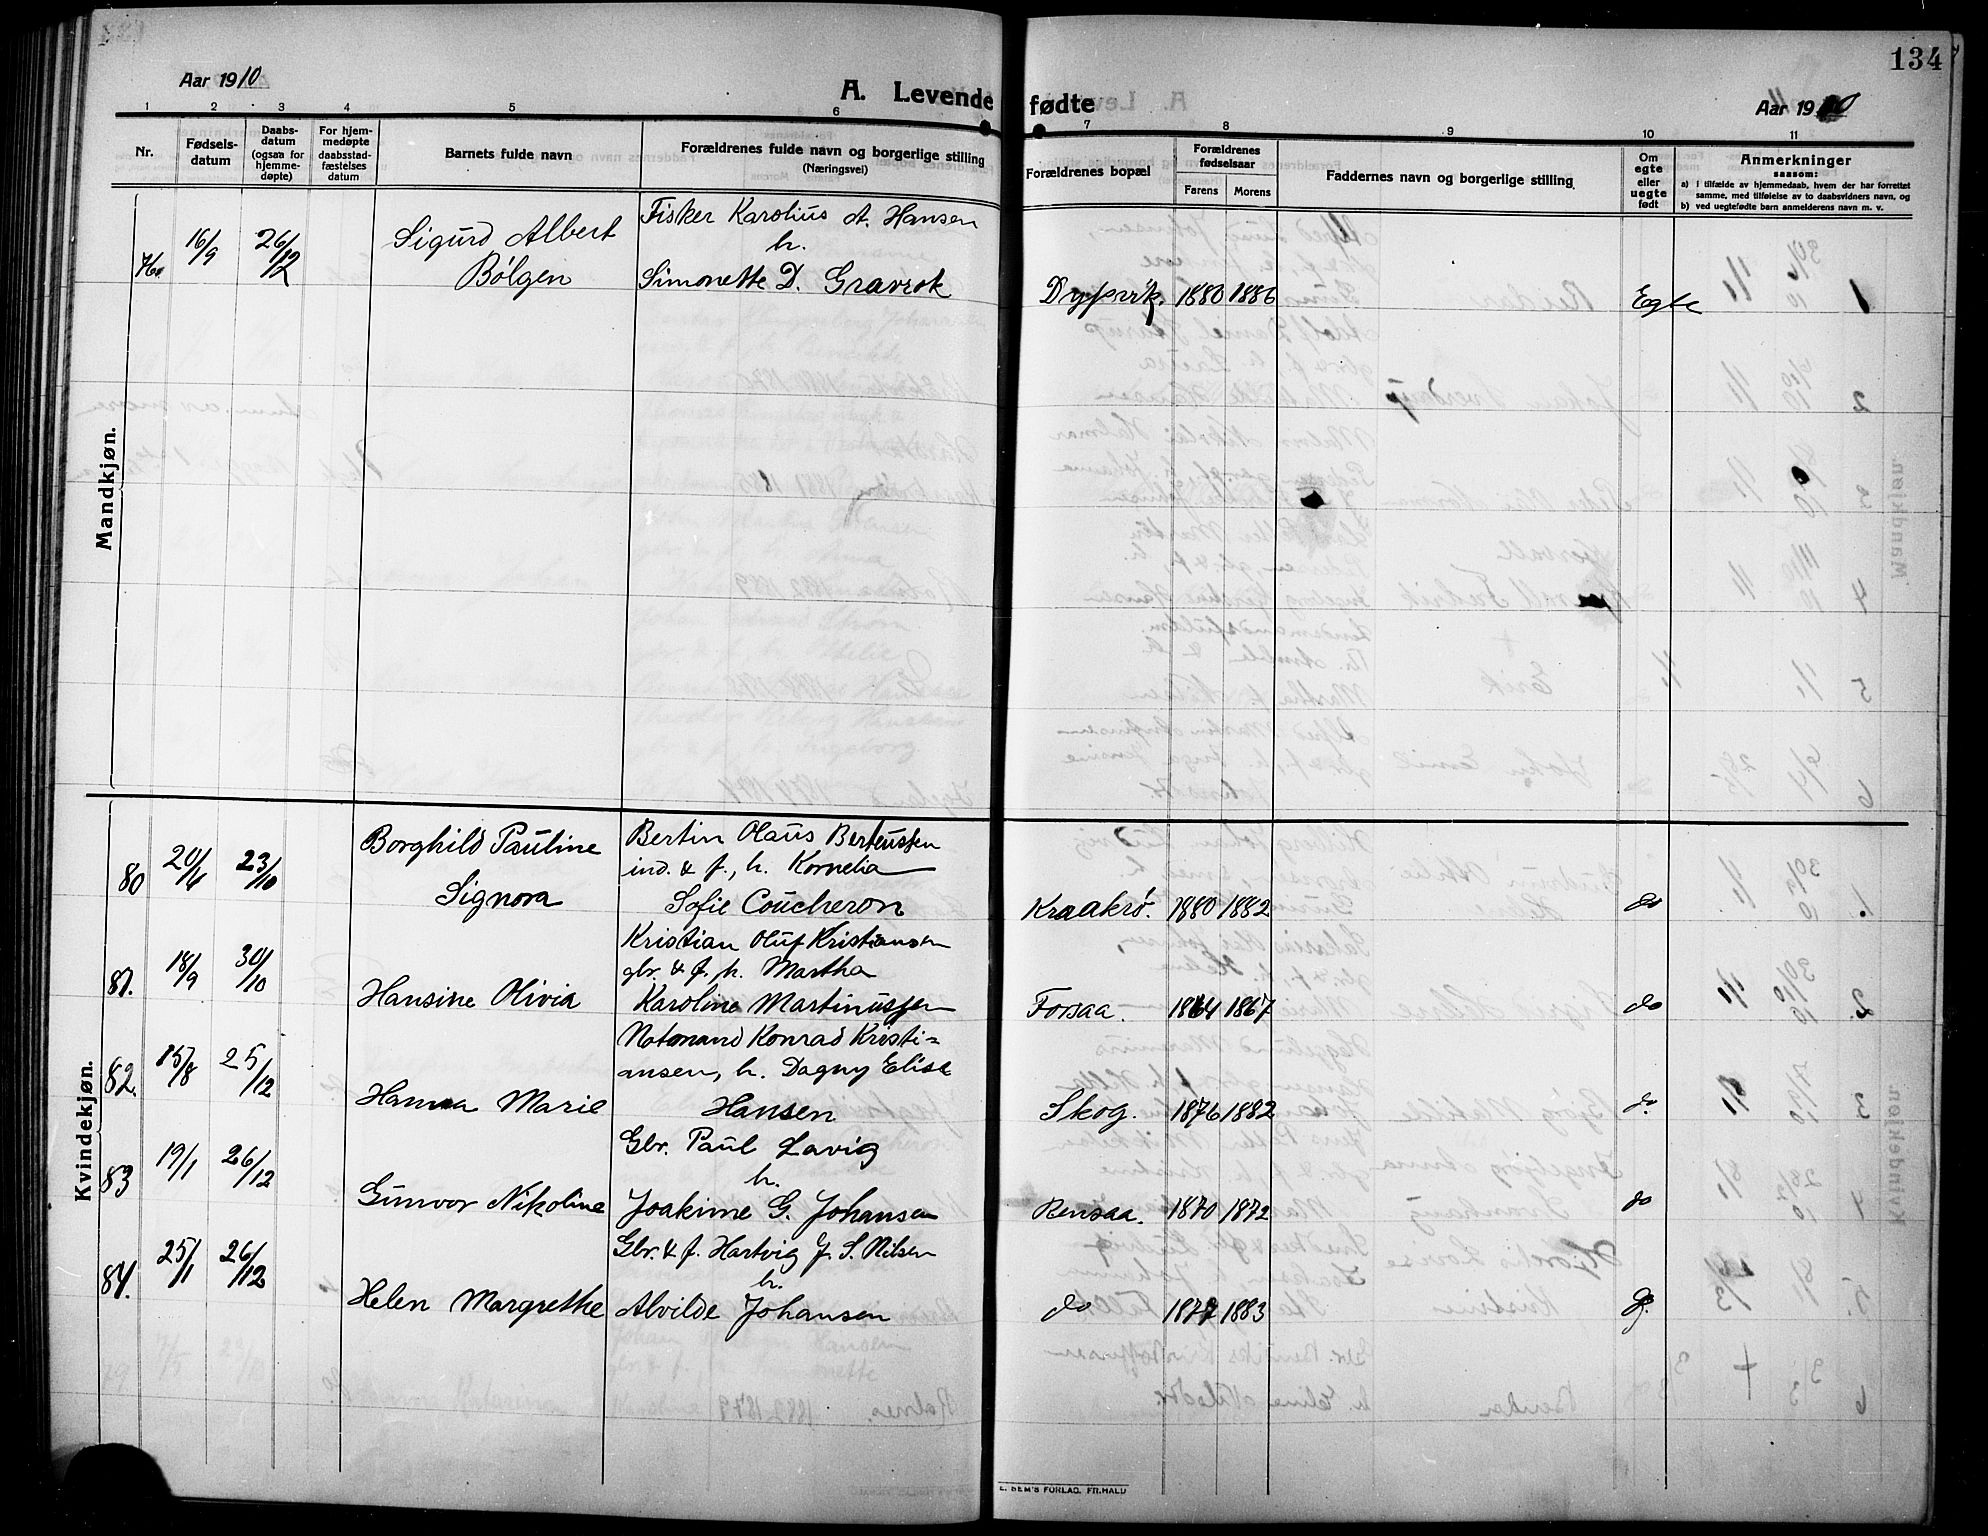 134
Aar 1910
A. Levende fødte
Aar 1910
1 2 3 4 5 6 7 8 9 10 11
Nr.
Fødsels-
datum
Daabs-
datum
(ogsaa for
hjemme-
døpte)
For hjem-
medøpte
daabsstad-
fæstelses
datum
Barnets fulde navn
Forældrenes fulde navn og borgerlige stilling
(Næringsvei)
Forældrenes bopæl
Forældrenes
fødselsaar
Farens Morens
Faddernes navn og borgerlige stilling
Om
egte
eller
uegte
født
Anmerkninger
saasom:
a) i tilfælde av hjemmedaab, hvem der har forrettet
samme, med tilføielse av to daabsvidners navn, og
b) ved uegtefødte barn anmelderens navn m. v.
Mandkjøn.
16/9 26/12
Sigurd Albert
Bølgen
Fisker Karolius A. Hansen
h.
Simonette D. Gravrok
Dypvik. 1880 1886 Egte
Kvindekjøn.
80 20/4 23/10
Borghild Pauline
Signora
Bertin Olaus Berteussen
ind. & f., h. Kornelia
Sofie Coucheron
Kraakrø. 1880 1882 do
81. 18/9 30/10
Hansine Olivia
Kristian Oluf Kristiansen
gbr. & f. h. Martha
Karoline Martinussen
Forsaa. 1864 1867 do
82. 15/8 25/12
Hanna Marie
Notmand Konrad Kristi=
ansen, h. Dagny Elise
Hansen
Skog. 1876 1882 do.
83 19/1 26/12
Gunvor Nikoline
Gbr. Paul Lavig
h.
Joakime G. Johansen
Rensaa. 1870 1872 do
84. 25/1 26/12
Helen Margrethe
Gbr. & f. Hartvig J. S. Nilsen
h.
Alvilde Johansen
do 1877 1883 do.
E. SEM'S FORLAG. FR.HALD